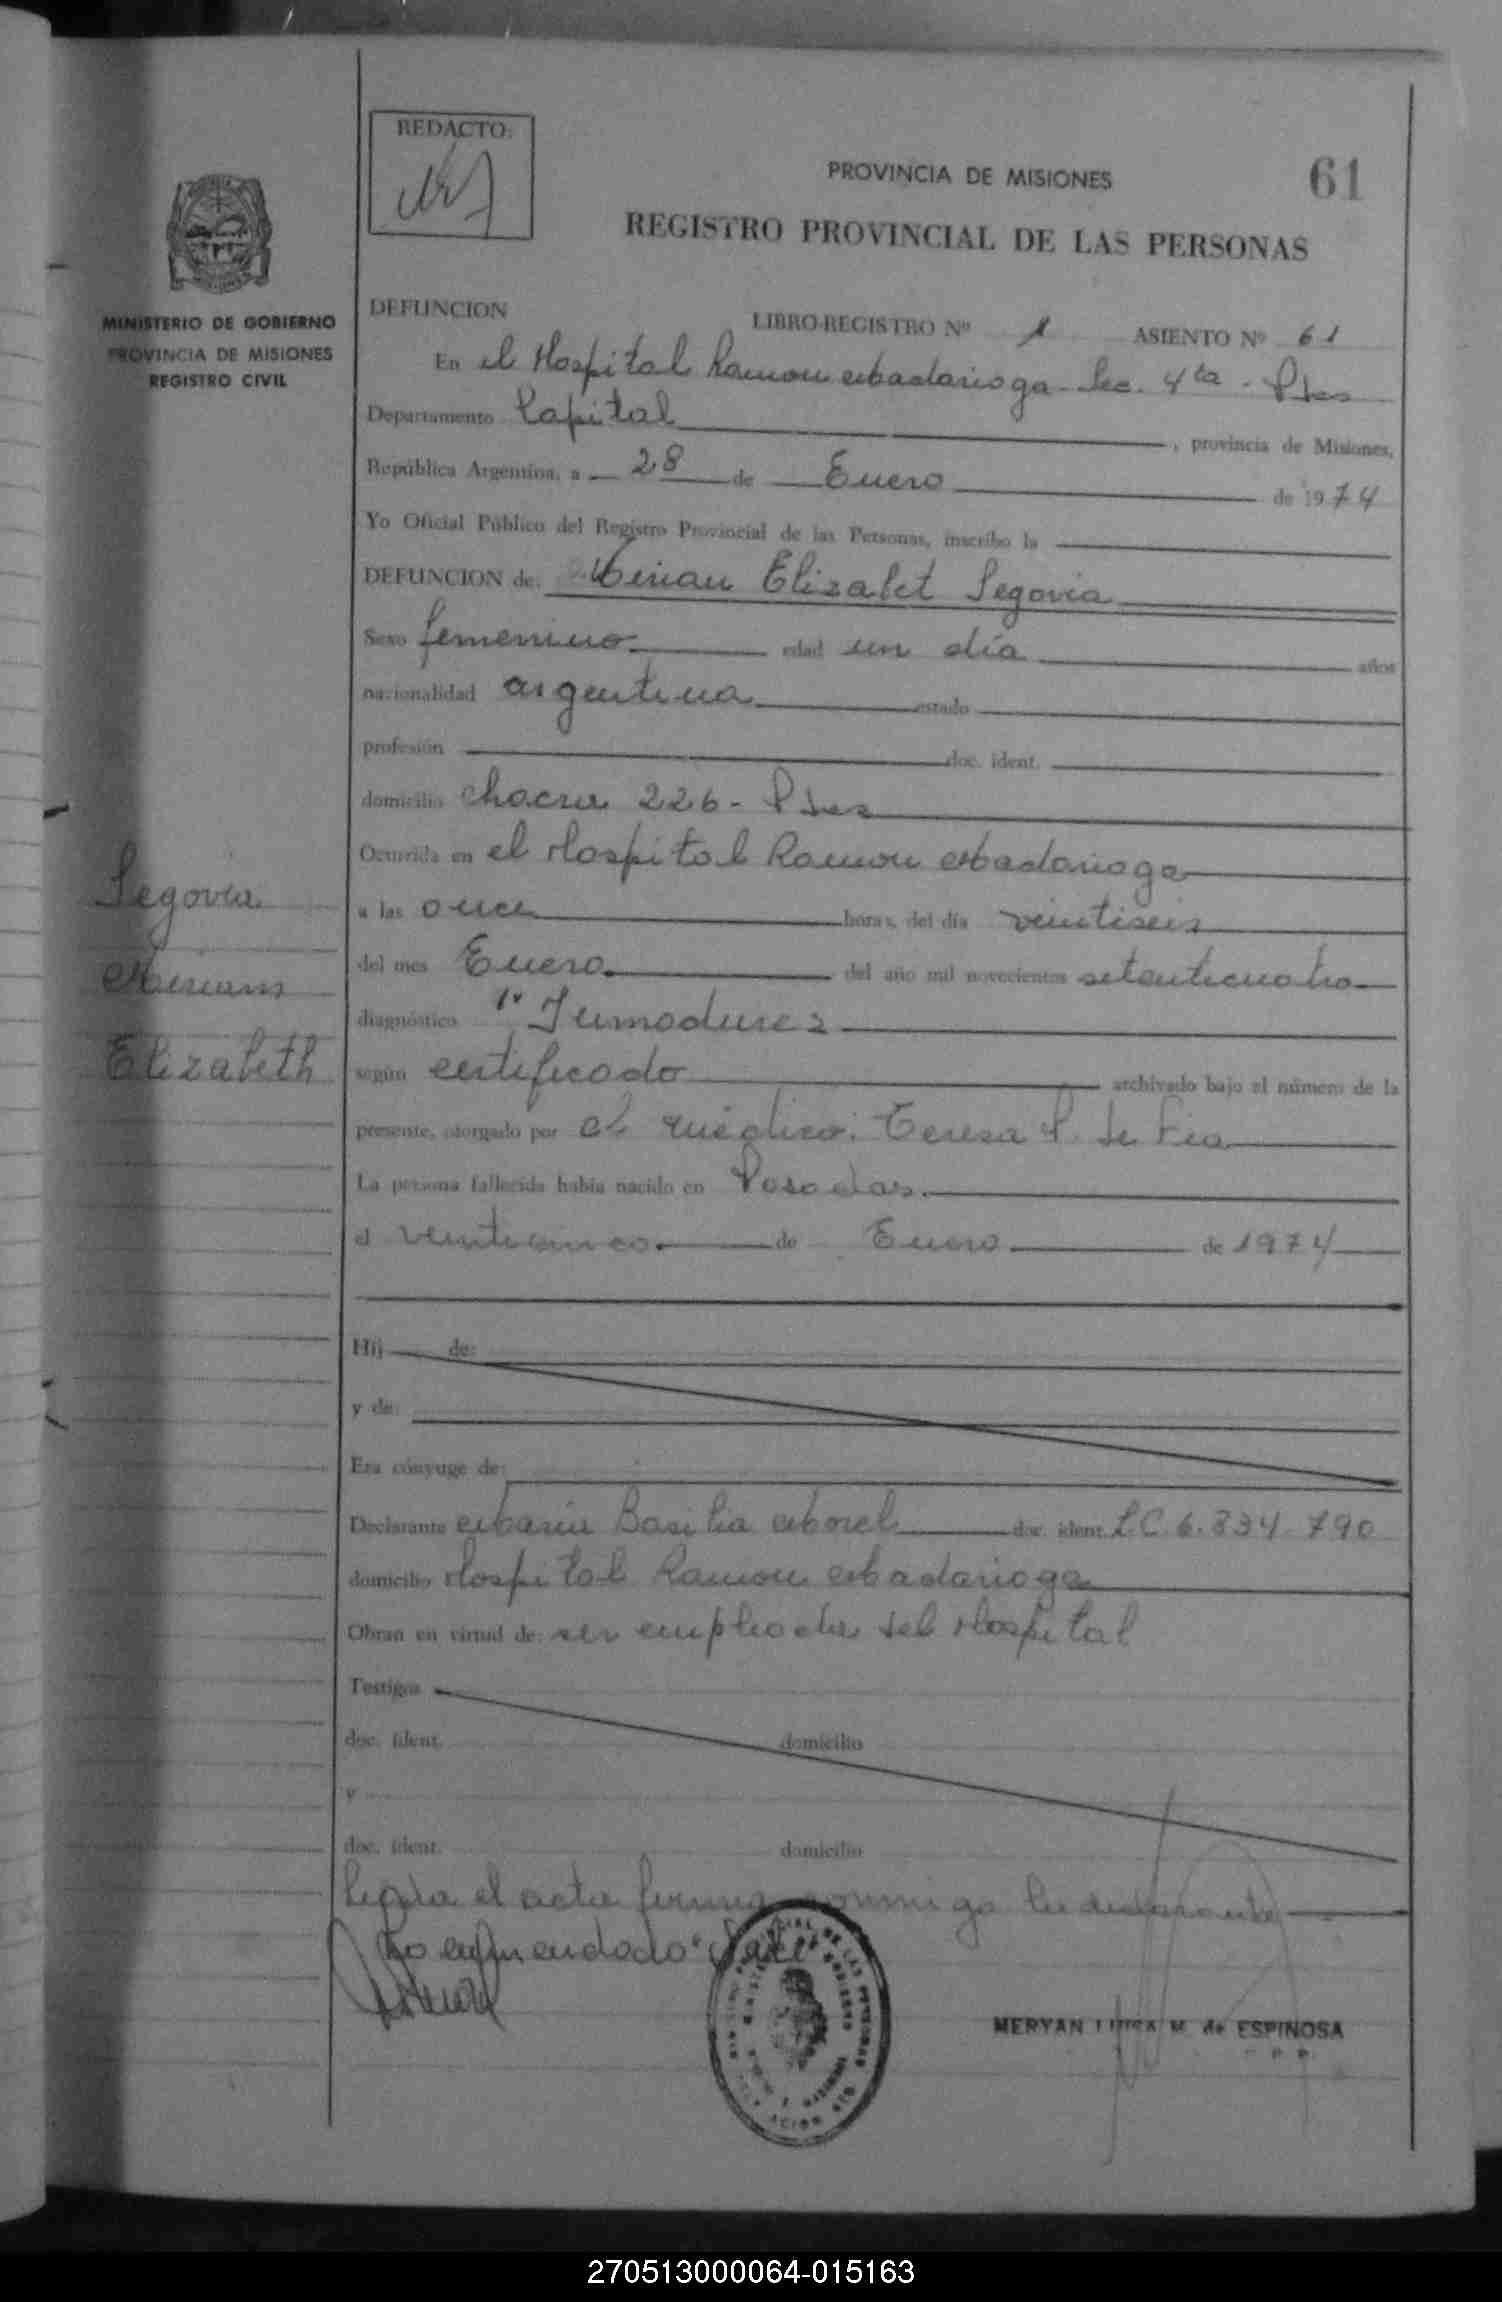 REDACTO:
PROVINCIA DE MISIONES
61
REGISTRO PROVINCIAL DE LAS PERSONAS
MINISTERIO DE GOBIERNO
PROVINCIA DE MISIONES
REGISTRO CIVIL
DEFUNCION LIBRO-REGISTRO Nº 1 ASIENTO Nº 61
En el Hospital Ramon Madariaga - Sec. 4ta - Pdas
Departamento Capital, provincia de Misiones,
República Argentina, a 28 de Enero de 1974
Yo Oficial Público del Registro Provincial de las Personas, inscribo la
DEFUNCION de: Mirian Elizabet Segovia
Sexo femenino edad un día años
nacionalidad argentina estado
profesión doc. ident.
domicilio chacra 226 - Pdas
Ocurrida en el Hospital Ramon Madariaga
a las once horas, del día veintiseis
del mes Enero del año mil novecientos setenticuatro
diagnóstico 1º Inmadurez
según certificado archivado bajo el número de la
presente, otorgado por el médico: Teresa
La persona fallecida había nacido en Posadas
el veinticinco de Enero de 1974
Segovia
Miriam
Elizabeth
Hij de:
y de:
Era cónyuge de:
Declarante Maria Basilia Morel doc. ident. L.C. 6.834.790
domicilio Hospital Ramon Madariaga
Obran en virtud de: ser empleada del Hospital
Testigos
doc. ident. domicilio
y
doc. ident. domicilio
Leida el acta firma conmigo la declarante
Lo enmendado "Vale
MERYAN LUISA M. de ESPINOSA
270513000064-015163